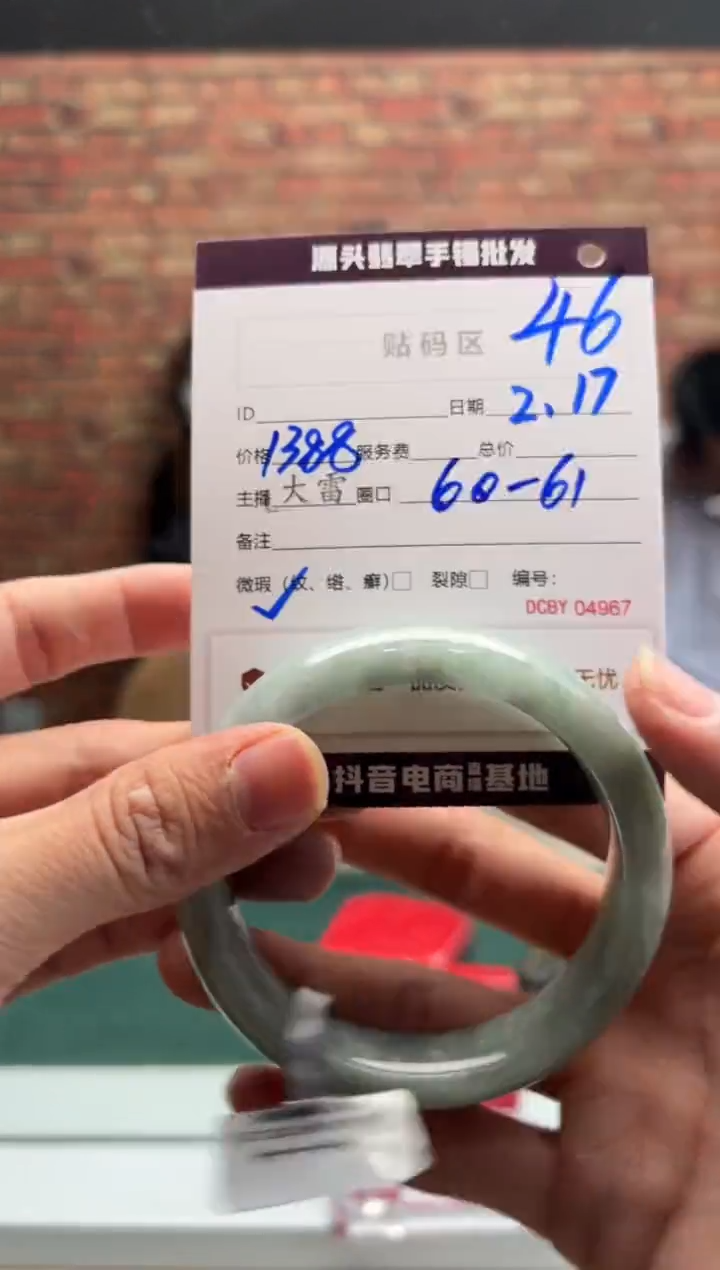 源头翡翠手镯批发
贴码区 46
ID 日期 2.17
价格 1388 服务费 总价
主播 大雷 圈口 60-61
备注
微瑕（纹、络、癣）□ 裂隙□ 编号：
✓
DCBY 04967
无忧
抖音电商直播基地